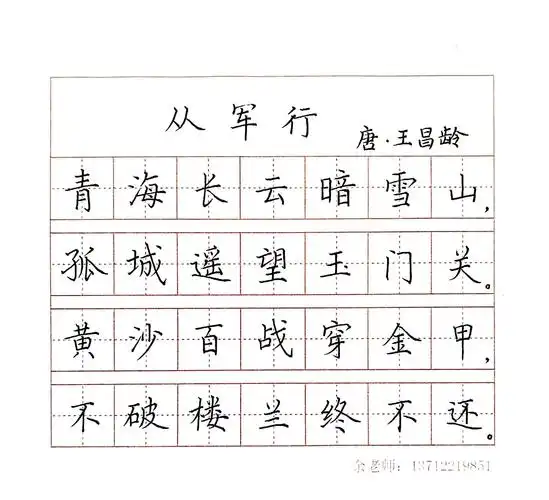 从军行
唐·王昌龄
青海长云暗雪山，
孤城遥望玉门关。
黄沙百战穿金甲，
不破楼兰终不还。
余老师：13712219851